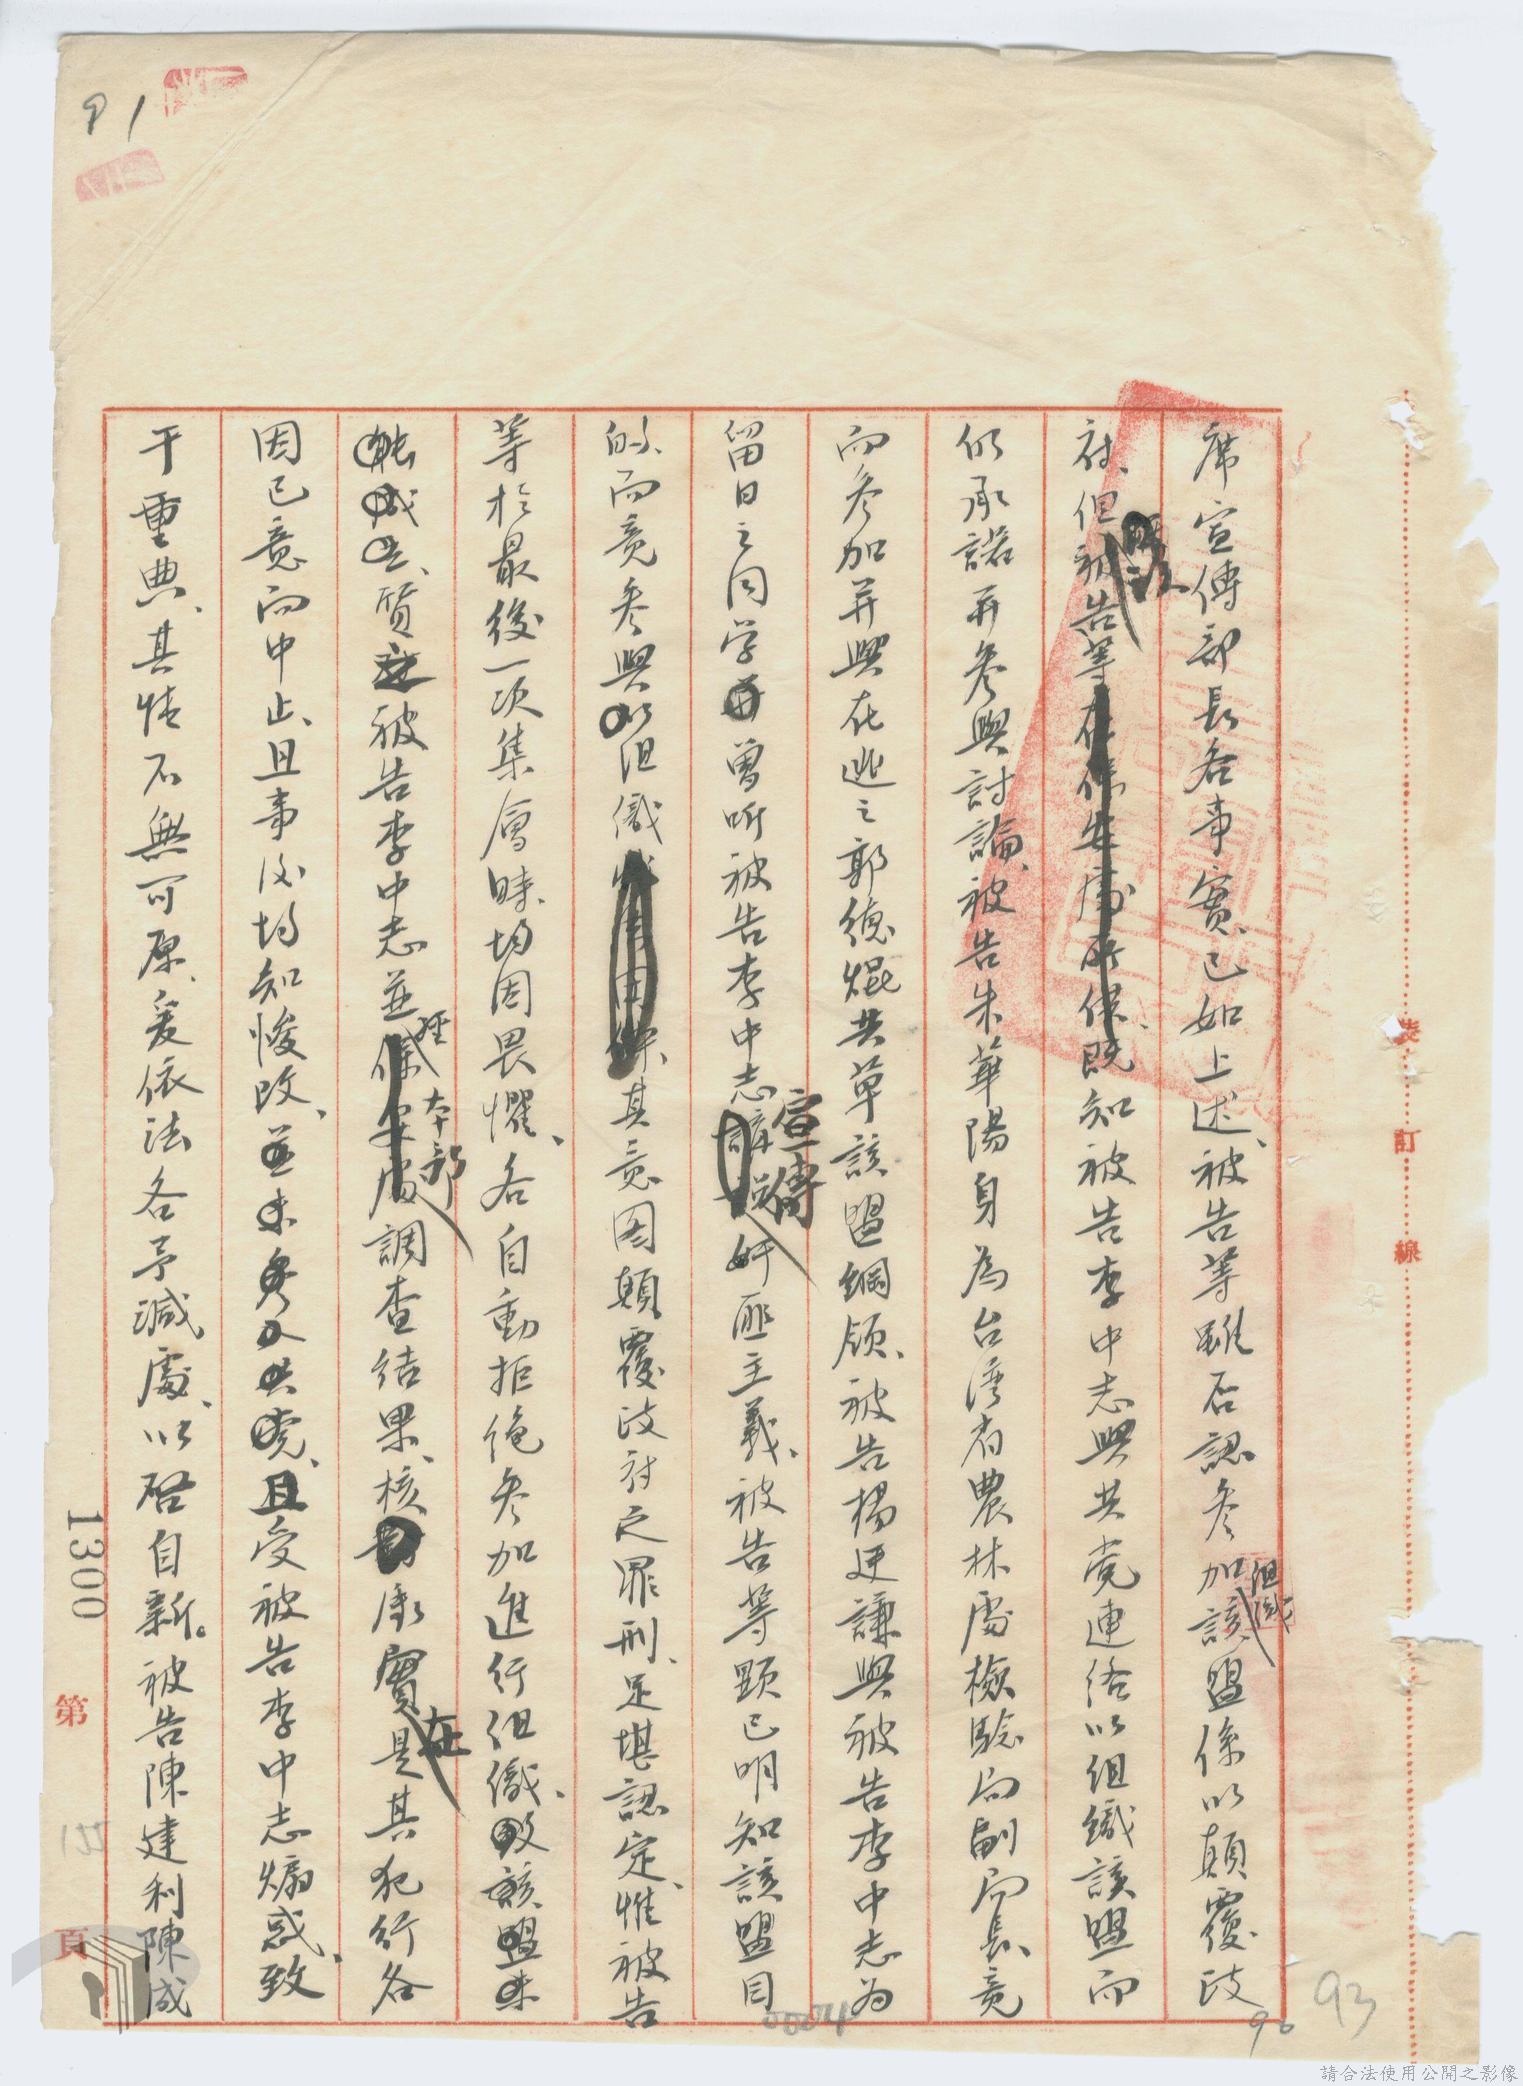 席宣傳部長各事實、已如上述、被告等雖否認參加該組織盟係以顛覆政
府、但被告等在保安處所供、既知被告李中志與共党連絡以組織該盟而
仍承諾并參與討論、被告朱華陽身為台湾省農林處檢驗局副局長、竟
而參加并與在逃之郭德焜共草該盟綱領、被告楊廷謙與被告李中志為
留日之同学曾听被告李中志宣傳奸匪主義、被告等顕已明知該盟目
的、而竟參與組織其意图顛覆政府之罪刑、足堪認定、惟被告
等於最後一次集會時、均因畏懼、各自動拒绝參加進行组織、致該盟未
能成立、質被告李中志並經本部調查结果、核屬實在是其犯行各
因己意而中止、且事後均知悛改、並未參入共党、且受被告李中志煽惑、致
干重典、其情不無可原、爰依法各予減處、以啓自新。被告陳建利陳成
裝
訂
線
第
頁
1300
91
93
90
0004
請合法使用公開之影像